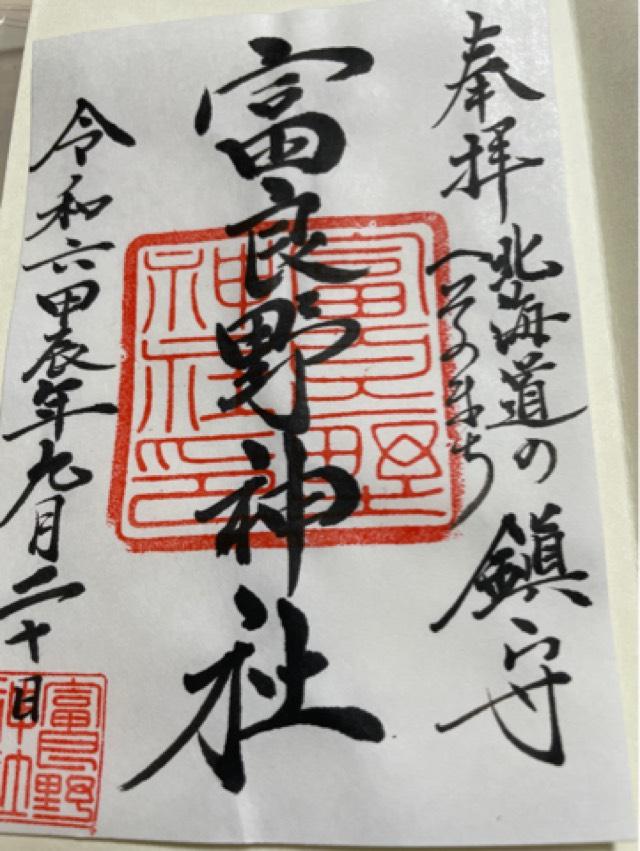 奉拝
北海道の
へそのまち
鎮守
富良野神社
富良野
神社印
令和六甲辰年九月二十日
富良野
神社